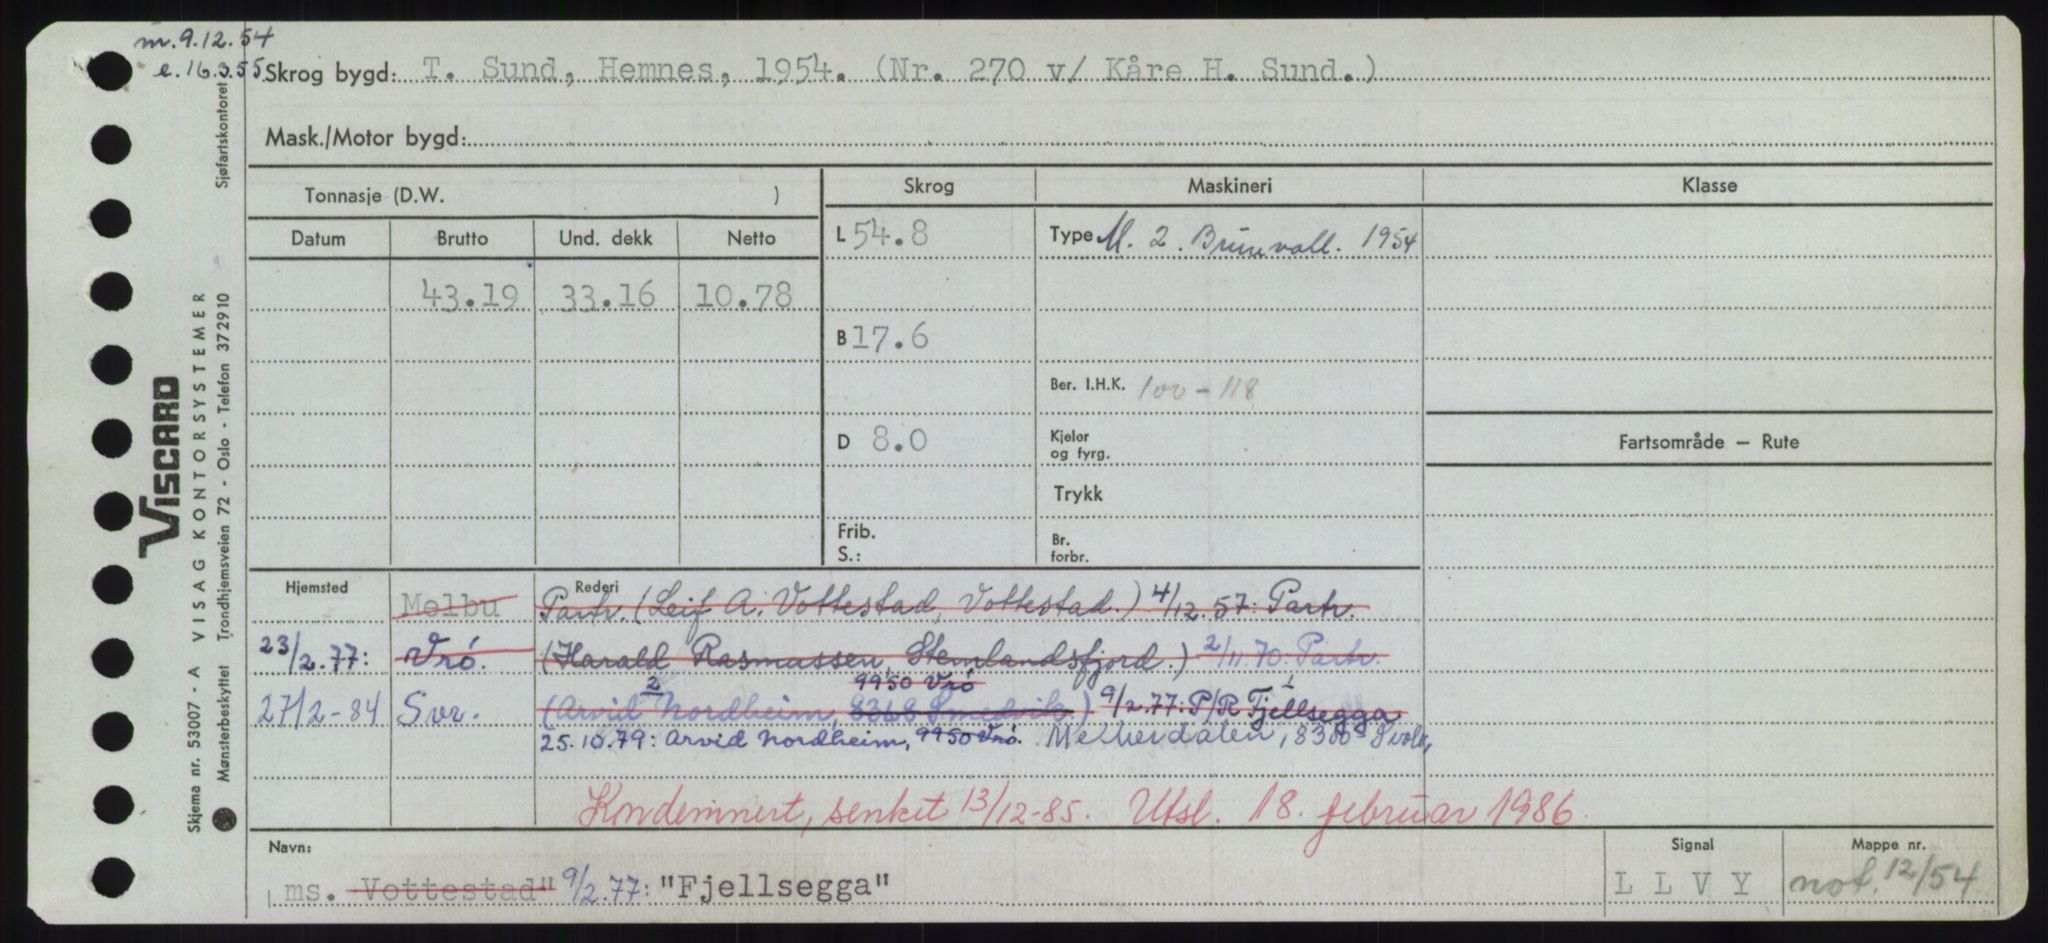 m. 9.12.54
e. 16.3.55
Skrog bygd: T. Sund, Hemnes, 1954. (Nr. 270 v/ Kåre H. Sund.)
Mask./Motor bygd:
Tonnasje (D.W. )
Skrog Maskineri Klasse
Datum Brutto Und. dekk Netto
L 54.8 Type M. 2. Brunvoll. 1954
43.19 33.16 10.78
B 17.6
Ber. I.H.K. 100-118
D 8.0 Kjeler og fyrg.
Fartsområde — Rute
Trykk
Frib. S.: Br. forbr.
Hjemsted Melbu Rederi Partr. (Leif A. Vottestad, Vottestad.) 4/12.57: Partr.
23/2.77: Vrö. (Harald Rasmussen, Stemlandsfjord.) 2/11.70: Partr.
2 9950 Vrö 1
27/2-84 Svr. (Arvid Nordheim, 8368 Smedvik.) 9/2.77: P/R Fjellsegga
25.10.79: Arvid Nordheim, 9950 Vrö. 8300 Svolv,
Kondemnert, senket 13/12-85. Utsl. 18. februar 1986.
Navn: Signal Mappe nr.
ms. Vottestad" 9/2.77: "Fjellsegga" LLVY not. 12/54
VISCARD
Skjema nr. 53007 - A VISAG KONTORSYSTEMER
Mønsterbeskyttet Trondhjemsveien 72 - Oslo - Telefon 372910 Sjøfartskontoret